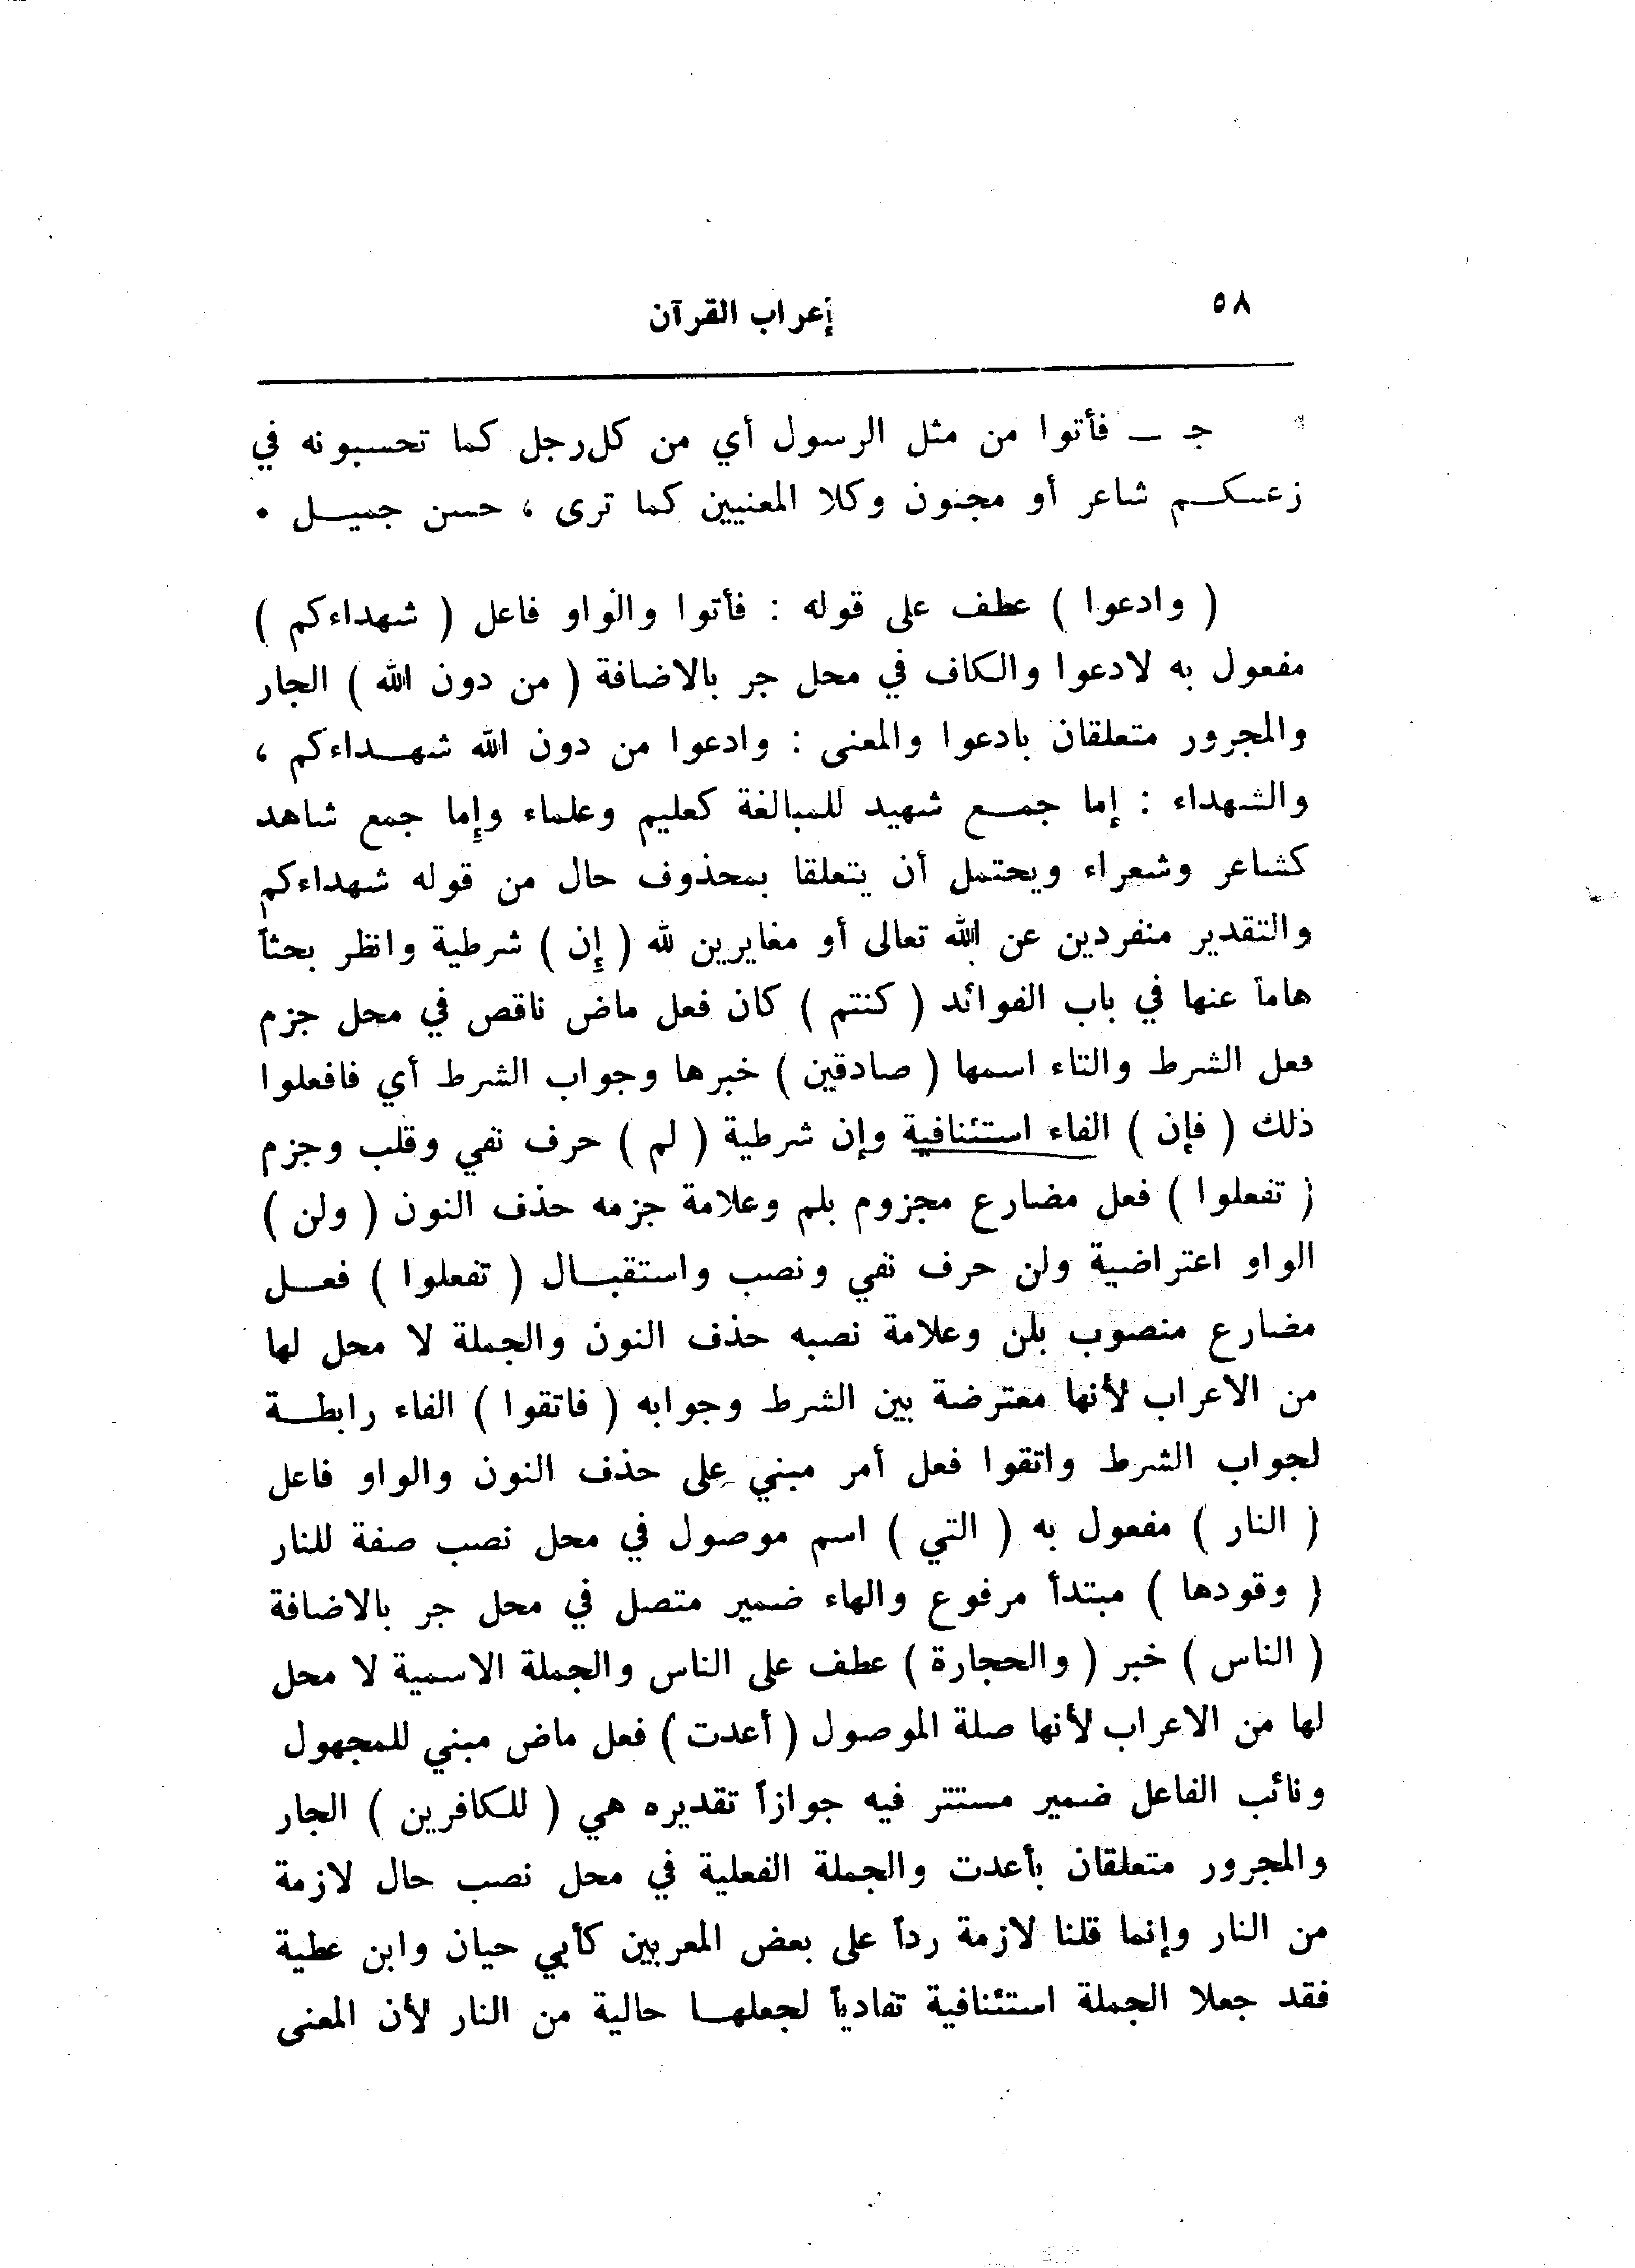 ٥٨ إعراب القرآن
جـ — فأتوا من مثل الرسول أي من كل رجل كما تحسبونه في
زعمكم شاعر أو مجنون وكلا المعنيين كما ترى ، حسن جميل ٠
( وادعوا ) عطف على قوله : فأتوا والواو فاعل ( شهداءكم )
مفعول به لادعوا والكاف في محل جر بالاضافة ( من دون الله ) الجار
والمجرور متعلقان بادعوا والمعنى : وادعوا من دون الله شهداءكم ،
والشهداء : إما جمع شهيد للمبالغة كعليم وعلماء وإما جمع شاهد
كشاعر وشعراء ويحتمل أن يتعلقا بمحذوف حال من قوله شهداءكم
والتقدير منفردين عن الله تعالى أو مغايرين لله ( إن ) شرطية وانظر بحثاً
هاماً عنها في باب الفوائد ( كنتم ) كان فعل ماض ناقص في محل جزم
فعل الشرط والتاء اسمها ( صادقين ) خبرها وجواب الشرط أي فافعلوا
ذلك ( فإن ) الفاء استئنافية وإن شرطية ( لم ) حرف نفي وقلب وجزم
( تفعلوا ) فعل مضارع مجزوم بلم وعلامة جزمه حذف النون ( ولن )
الواو اعتراضية ولن حرف نفي ونصب واستقبال ( تفعلوا ) فعل
مضارع منصوب بلن وعلامة نصبه حذف النون والجملة لا محل لها
من الاعراب لأنها معترضة بين الشرط وجوابه ( فاتقوا ) الفاء رابطة
لجواب الشرط واتقوا فعل أمر مبني على حذف النون والواو فاعل
( النار ) مفعول به ( التي ) اسم موصول في محل نصب صفة للنار
( وقودها ) مبتدأ مرفوع والهاء ضمير متصل في محل جر بالاضافة
( الناس ) خبر ( والحجارة ) عطف على الناس والجملة الاسمية لا محل
لها من الاعراب لأنها صلة الموصول ( أعدت ) فعل ماض مبني للمجهول
ونائب الفاعل ضمير مستتر فيه جوازاً تقديره هي ( للكافرين ) الجار
والمجرور متعلقان بأعدت والجملة الفعلية في محل نصب حال لازمة
من النار وإنما قلنا لازمة رداً على بعض المعربين كأبي حيان وابن عطية
فقد جعلا الجملة استئنافية تفادياً لجعلها حالية من النار لأن المعنى